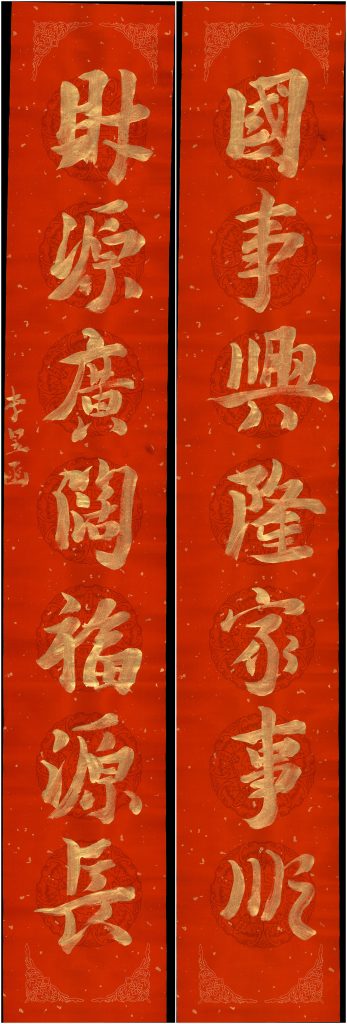 國事興隆家事順
財源廣闊福源長